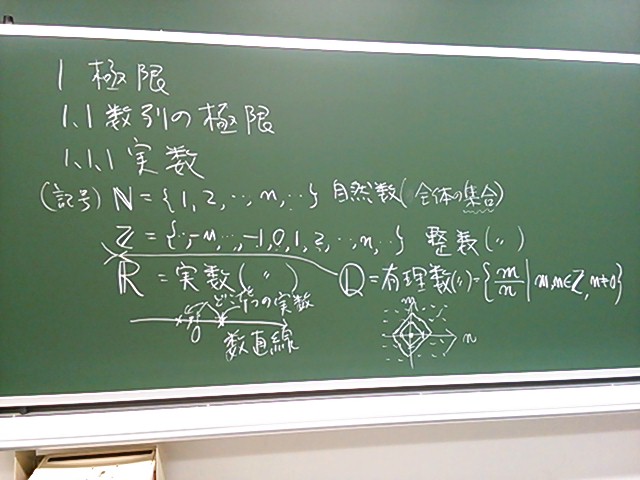 1 極限
1.1 数列の極限
1.1.1 実数
(記号) N = {1, 2, ‥, n, ‥} 自然数(全体の集合)
Z = {‥, -n, ‥, -1, 0, 1, 2, ‥, n, ‥} 整数(〃)
R = 実数(〃) Q = 有理数(〃) = {m/n | m, n∈Z, n≠0}
つの実数
数直線
m
n